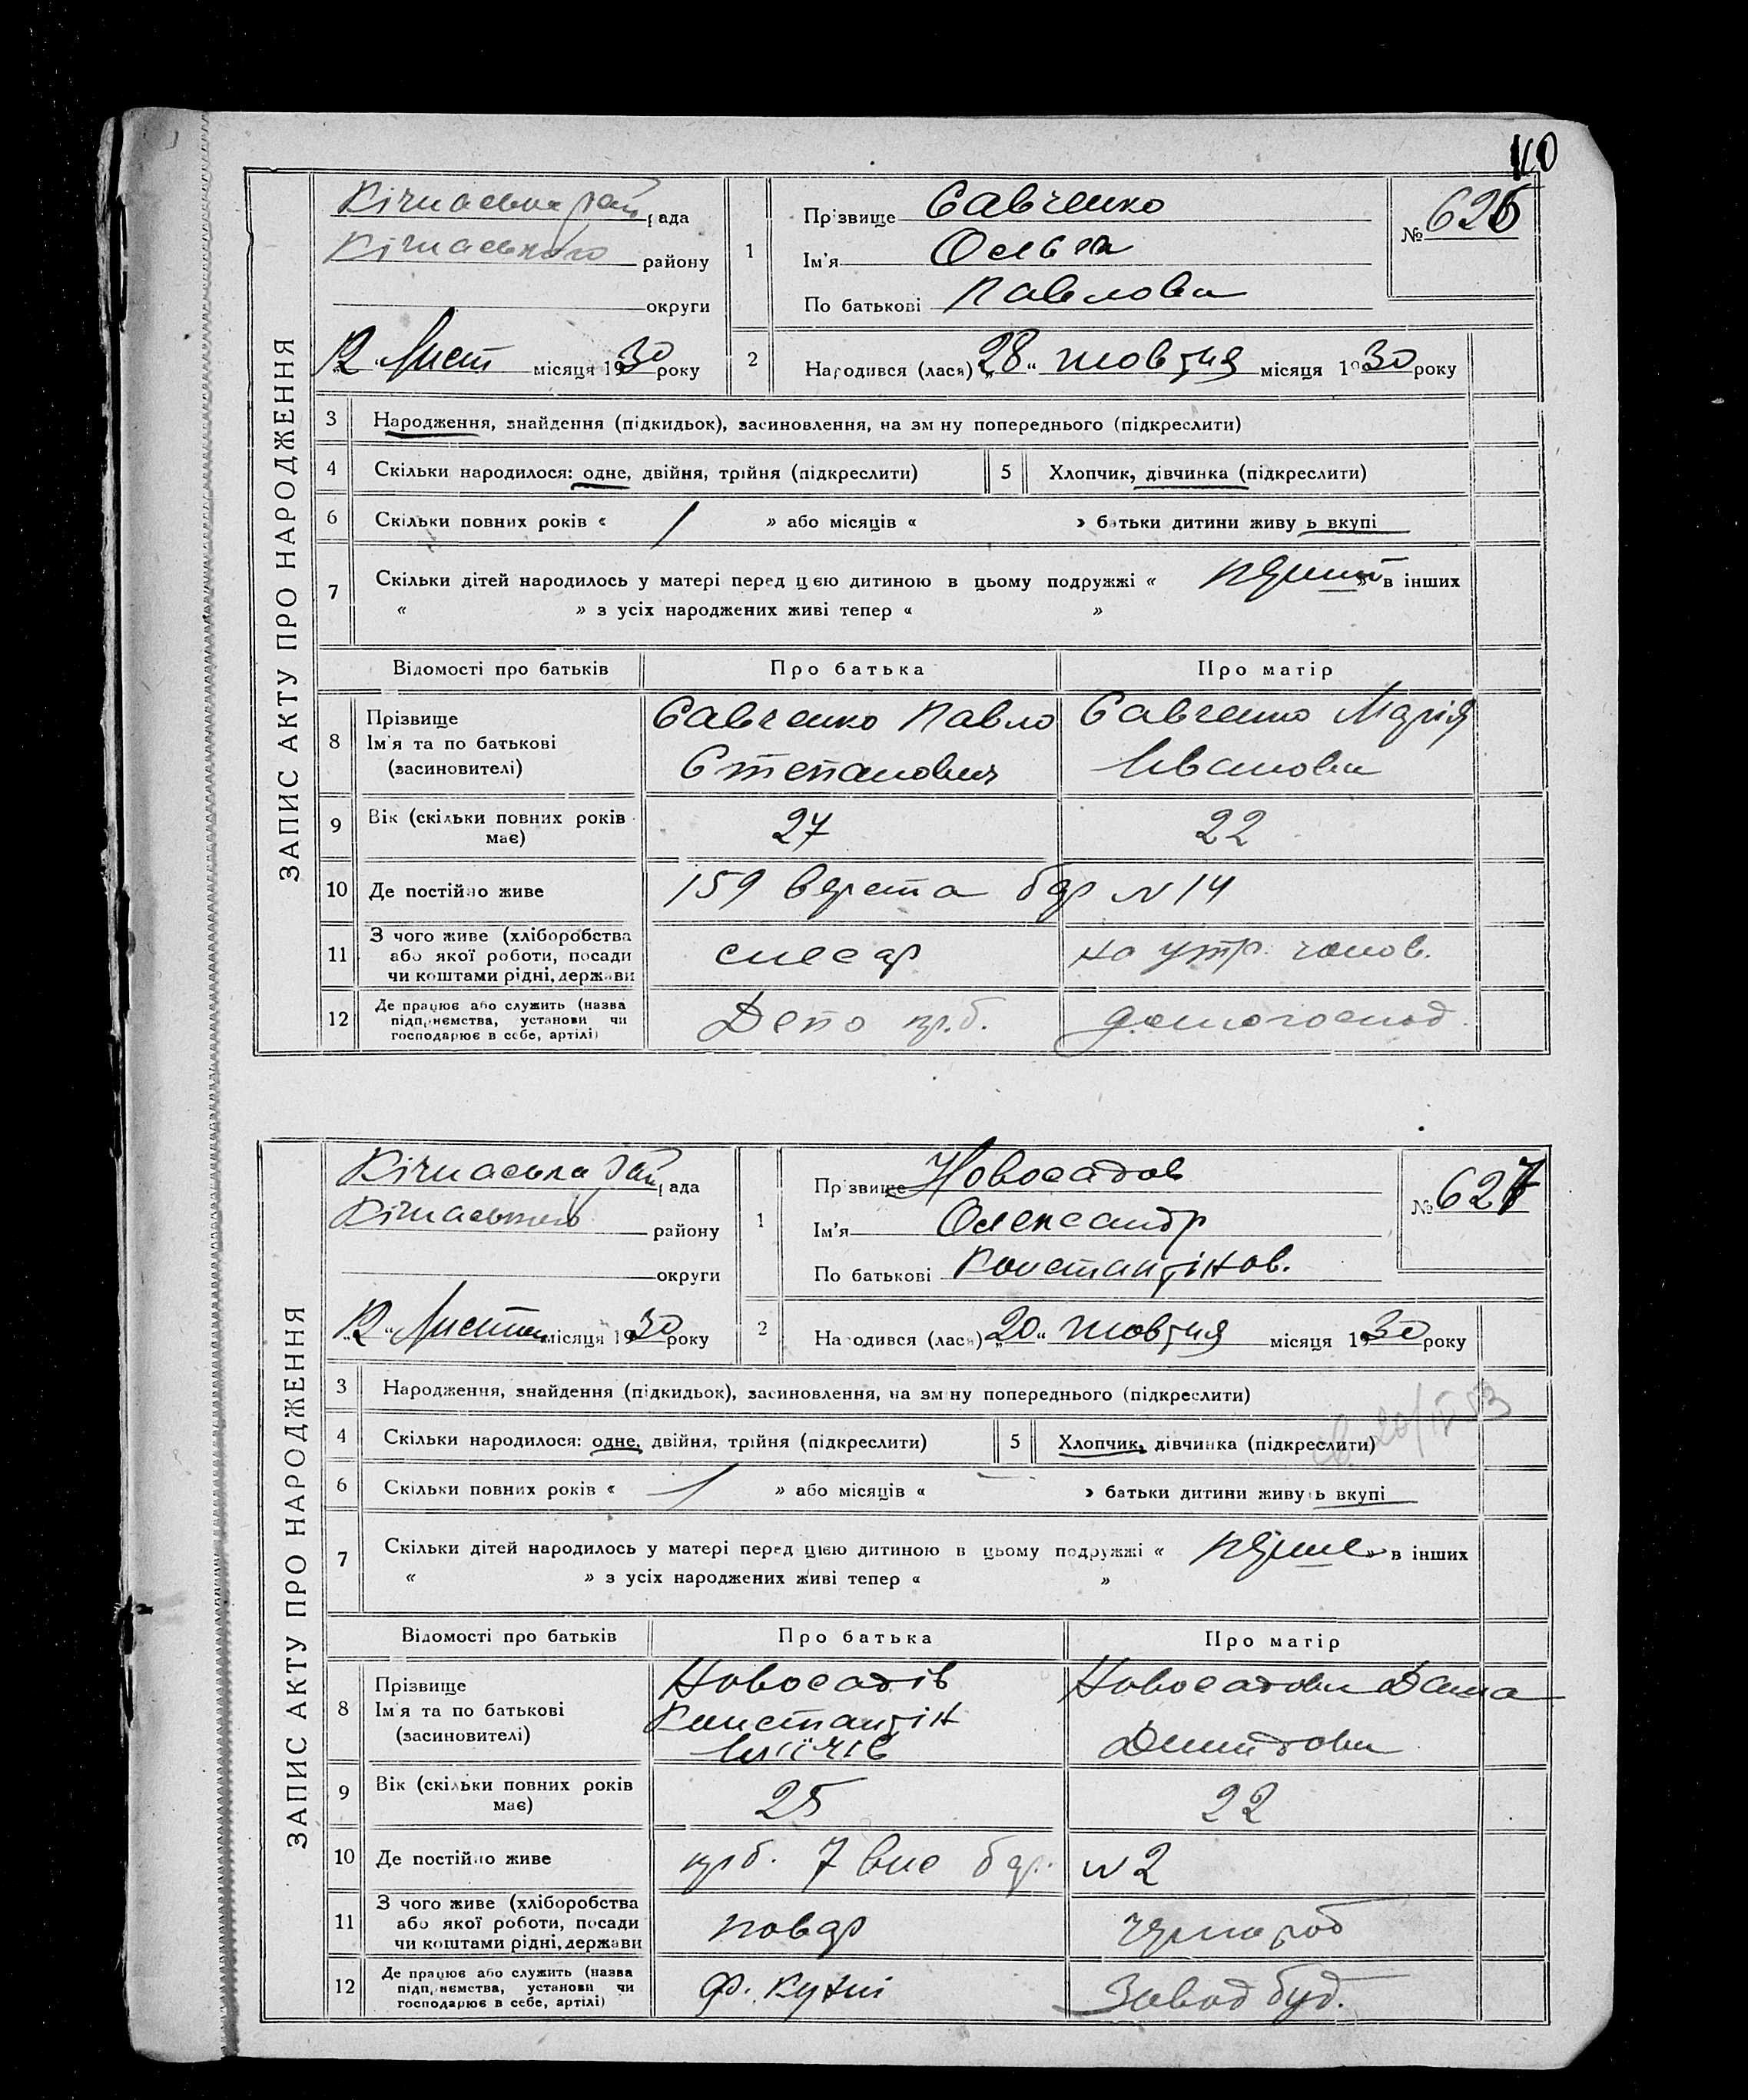 110
ЗАПИС АКТУ ПРО НАРОДЖЕННЯ
Кічкаська рай рада
Кічкаського району
округи
"12" Лист місяця 1930 року
1
Прізвище Савченко
Ім'я Ольга
По батькові Павловна
№ 626
2
Народився (лася) "28" жовтня місяця 1930 року
3 Народження, знайдення (підкидьок), засиновлення, на зміну попереднього (підкреслити)
4 Скільки народилося: одне, двійня, трійня (підкреслити) 5 Хлопчик, дівчинка (підкреслити)
6 Скільки повних років « / » або місяців « » батьки дитини живуть вкупі
7 Скільки дітей народилось у матері перед цією дитиною в цьому подружжі « » в інших
« » з усіх народжених живі тепер « »
Відомості про батьків Про батька Про матір
8 Прізвище
Ім'я та по батькові
(засиновителі)
Савченко Павло
Степанович
Савченко Марія
Ивановна
9 Вік (скільки повних років має) 27 22
10 Де постійно живе 159 верста бар N 14
11 З чого живе (хліборобства
або якої роботи, посади
чи коштами рідні, держави
слесар на утр. чолов.
12 Де працює або служить (назва
підприємства, установи чи
господарює в себе, артілі)
Депо домогоспод.
ЗАПИС АКТУ ПРО НАРОДЖЕННЯ
Кічкаська рай рада
Кічкаського району
округи
"12" Листоп місяця 1930 року
1
Прізвище Новосадов
Ім'я Олександр
По батькові Константінов.
№ 627
2
Народився (лася) "20" жовтня місяця 1930 року
3 Народження, знайдення (підкидьок), засиновлення, на зміну попереднього (підкреслити)
4 Скільки народилося: одне, двійня, трійня (підкреслити) 5 Хлопчик, дівчинка (підкреслити)
6 Скільки повних років « / » або місяців « — » батьки дитини живуть вкупі
7 Скільки дітей народилось у матері перед цією дитиною в цьому подружжі « перше » в інших
« » з усіх народжених живі тепер « »
Відомості про батьків Про батька Про матір
8 Прізвище
Ім'я та по батькові
(засиновителі)
Новосадів
Константін
Новосадова Даша
Демидовна
9 Вік (скільки повних років має) 25 22
10 Де постійно живе 7 бар. N 2
11 З чого живе (хліборобства
або якої роботи, посади
чи коштами рідні, держави
повар чернороб
12 Де працює або служить (назва
підприємства, установи чи
господарює в себе, артілі)
ф. кухні Завод буд.